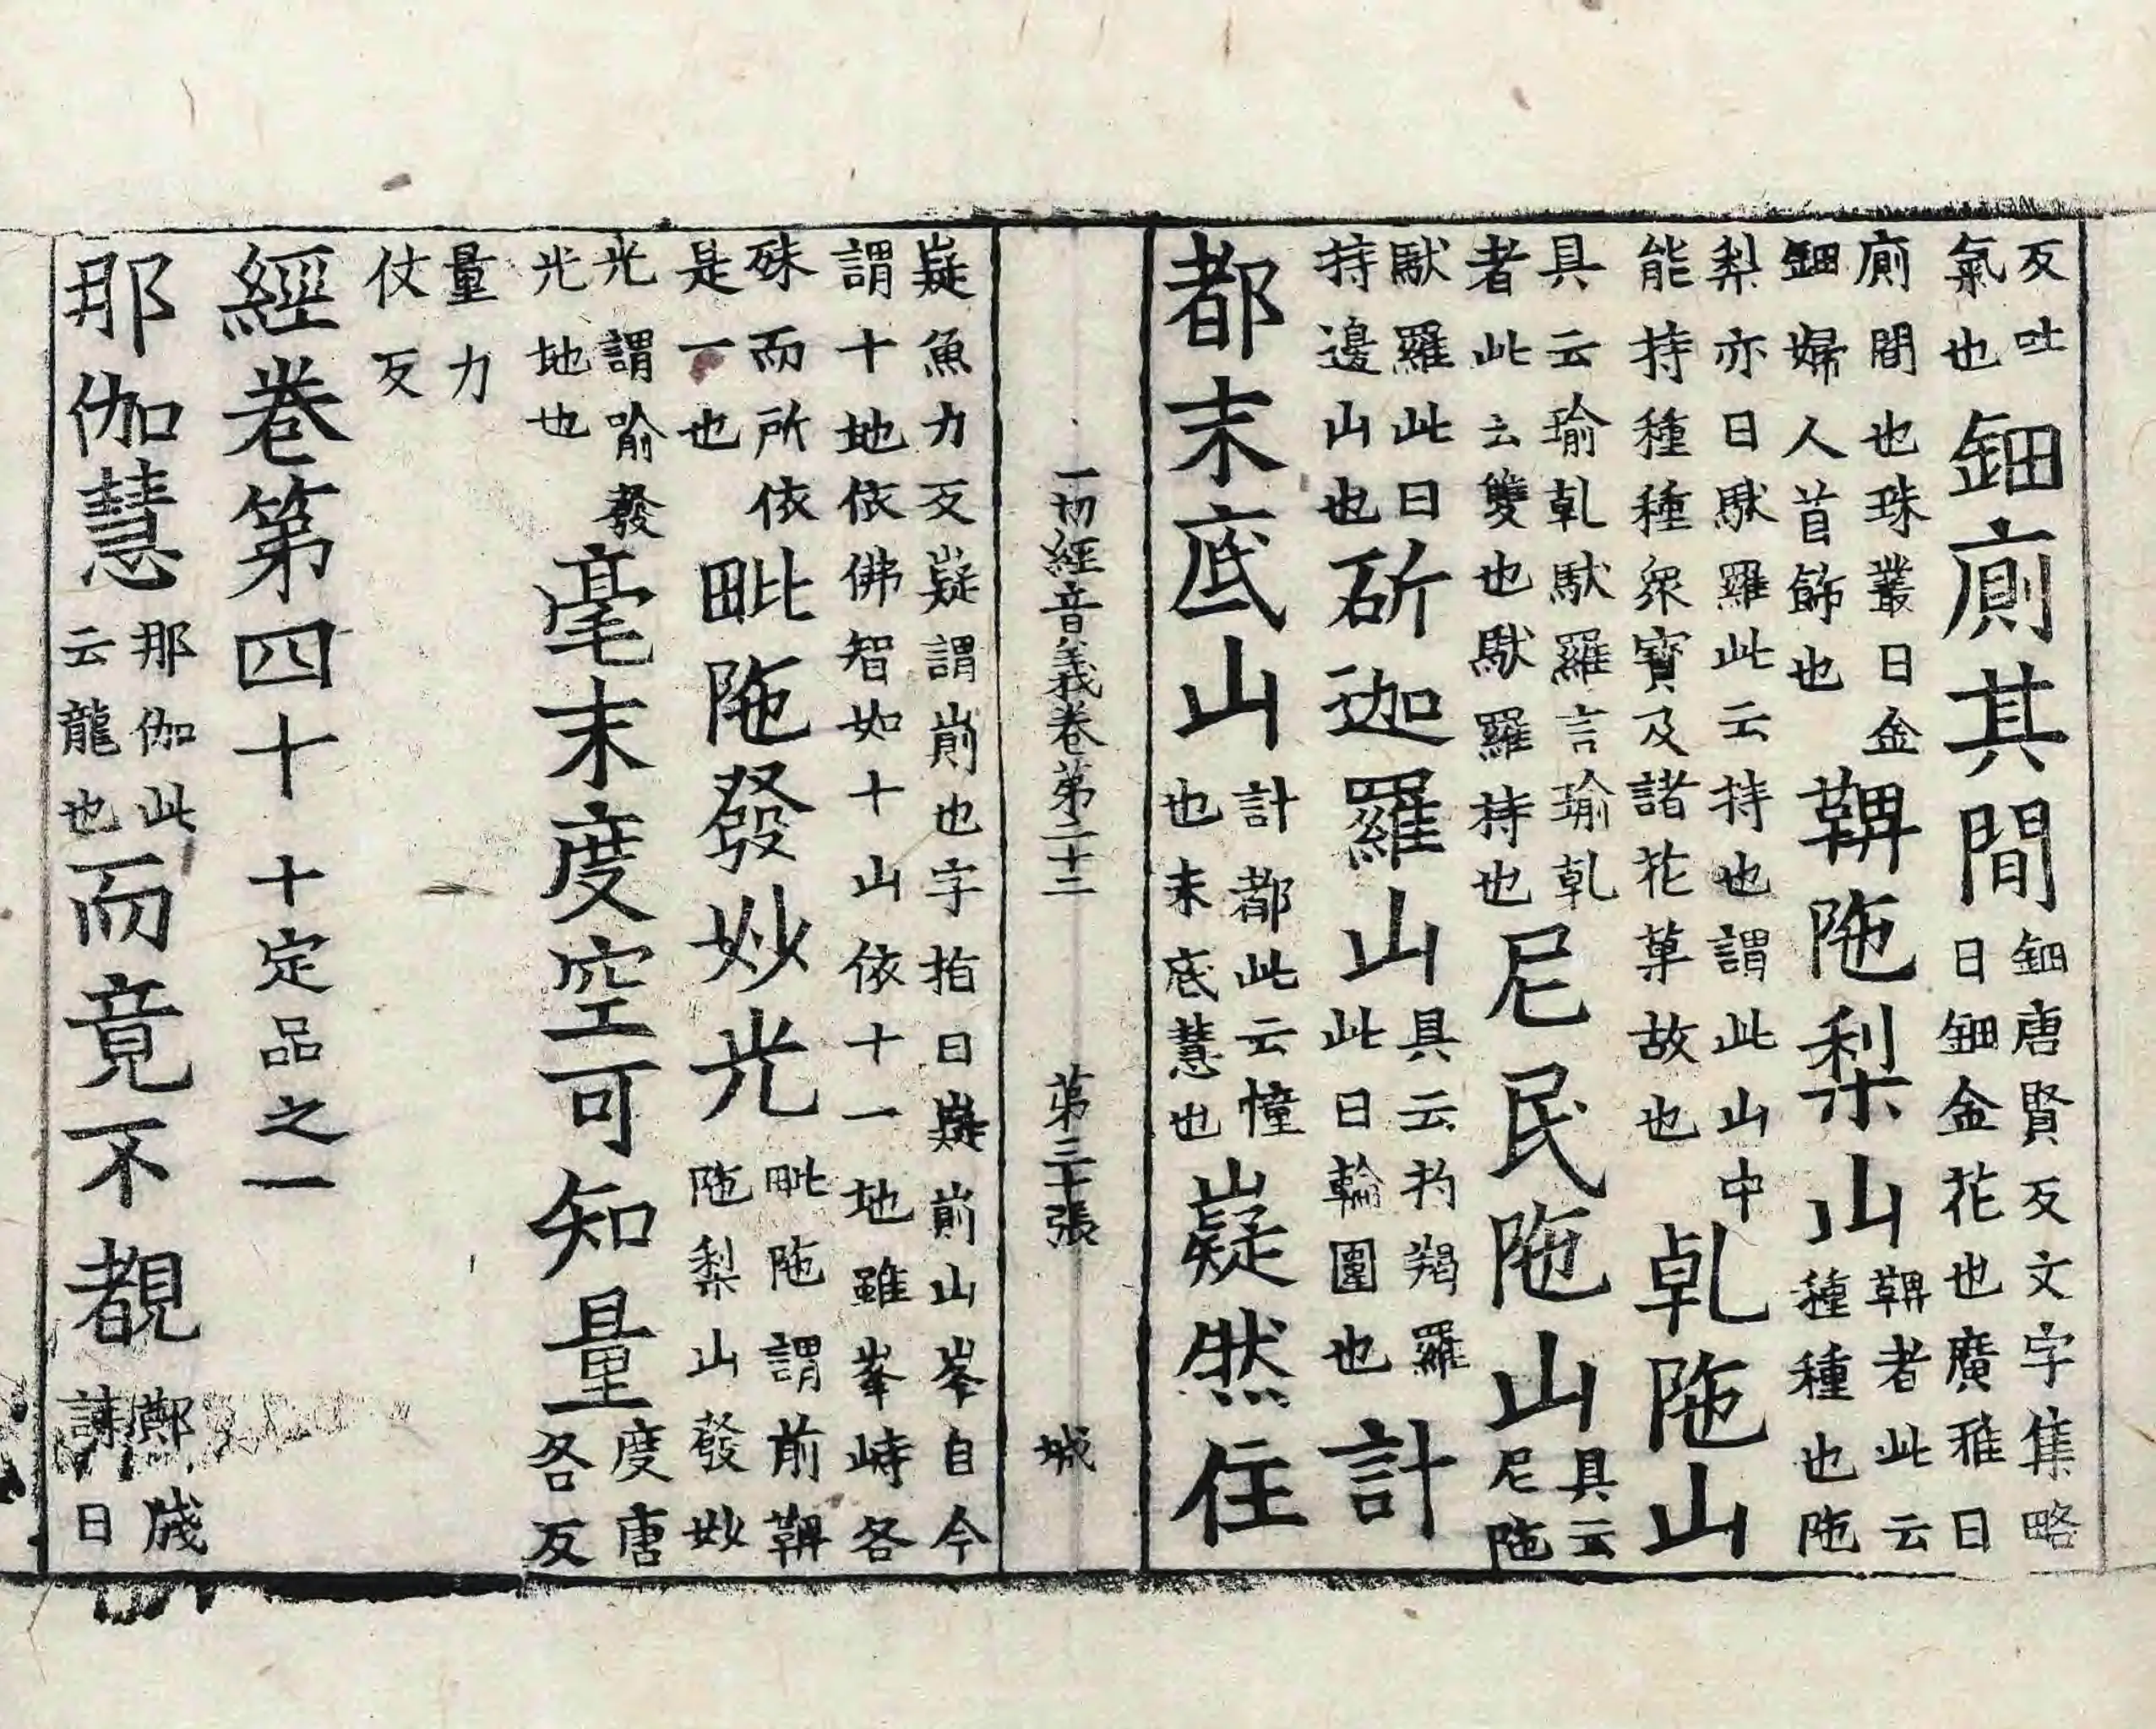 反吐氣也鈿廁其間鈿唐賢反文字集略曰鈿金花也廣雅曰
廁間也珠叢曰金鈿婦人首飾也鞞陁梨山鞞者此云種種也陁
梨亦曰馱羅此云持也謂此山中能持種種衆寶及諸花菓故也乹陁山
具云瑜乹馱羅言瑜乹者此云雙也馱羅持也尼民陁山具云尼陁
馱羅此曰持邊山也斫迦羅山具云杓羯羅此曰輪圍也計
都末底山計都此云憧也末底慧也嶷然住
一切經音義卷第二十二 第三十張 城
嶷魚力反嶷謂崱也字指曰嶷崱山岑自今謂十地依佛智如十山依十一地雖峯峙各
殊而所依是一也毗陁發妙光毗陁謂前鞞陁梨山發妙
光謂喻發光地也毫末度空可知量度唐各反
量力仗反
經卷第四十 十定品之一
那伽慧那伽此云龍也而竟不覩鄭牋曰